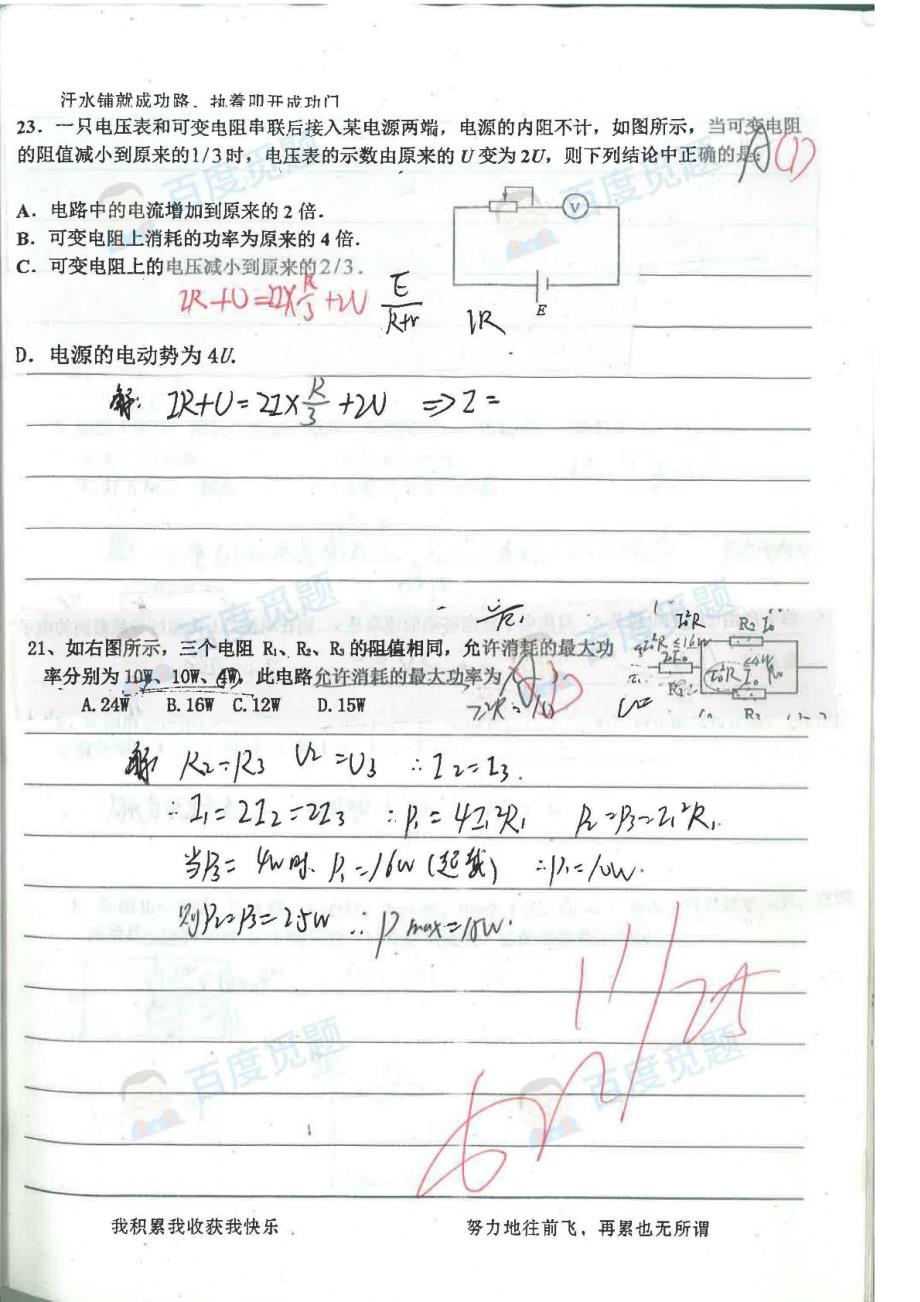 汗水铺就成功路,执着叩开成功门
23．一只电压表和可变电阻串联后接入某电源两端，电源的内阻不计，如图所示，当可变电阻
的阻值减小到原来的1/3时，电压表的示数由原来的 U 变为 2U，则下列结论中正确的是：
A (1)
A．电路中的电流增加到原来的 2 倍．
V
B．可变电阻上消耗的功率为原来的 4 倍．
C．可变电阻上的电压减小到原来的2/3．
E
IR+U=2I×R/3+2U
E/R+r
IR
D．电源的电动势为 4U.
解: IR+U=2I×R/3+2U ⇒I=
百度觅题
21、如右图所示，三个电阻 R₁、R₂、R₃ 的阻值相同，允许消耗的最大功
率分别为 10W、10W、4W，此电路允许消耗的最大功率为
A.24W B.16W C.12W D.15W
R₂ I₀
2I₀
R₁
R₃
解 R₂=R₃ U₂=U₃ ∴I₂=I₃.
∴I₁=2I₂=2I₃ ∴P₁=4I₁²R₁ P₂=P₃=I₁²R₁.
当P₃=4w时. P₁=16w (超载) ∴P₁=10w.
则P₂=P₃=2.5w ∴Pmax=15w.
11/25
百度觅题
百度觅题
我积累我收获我快乐
努力地往前飞，再累也无所谓